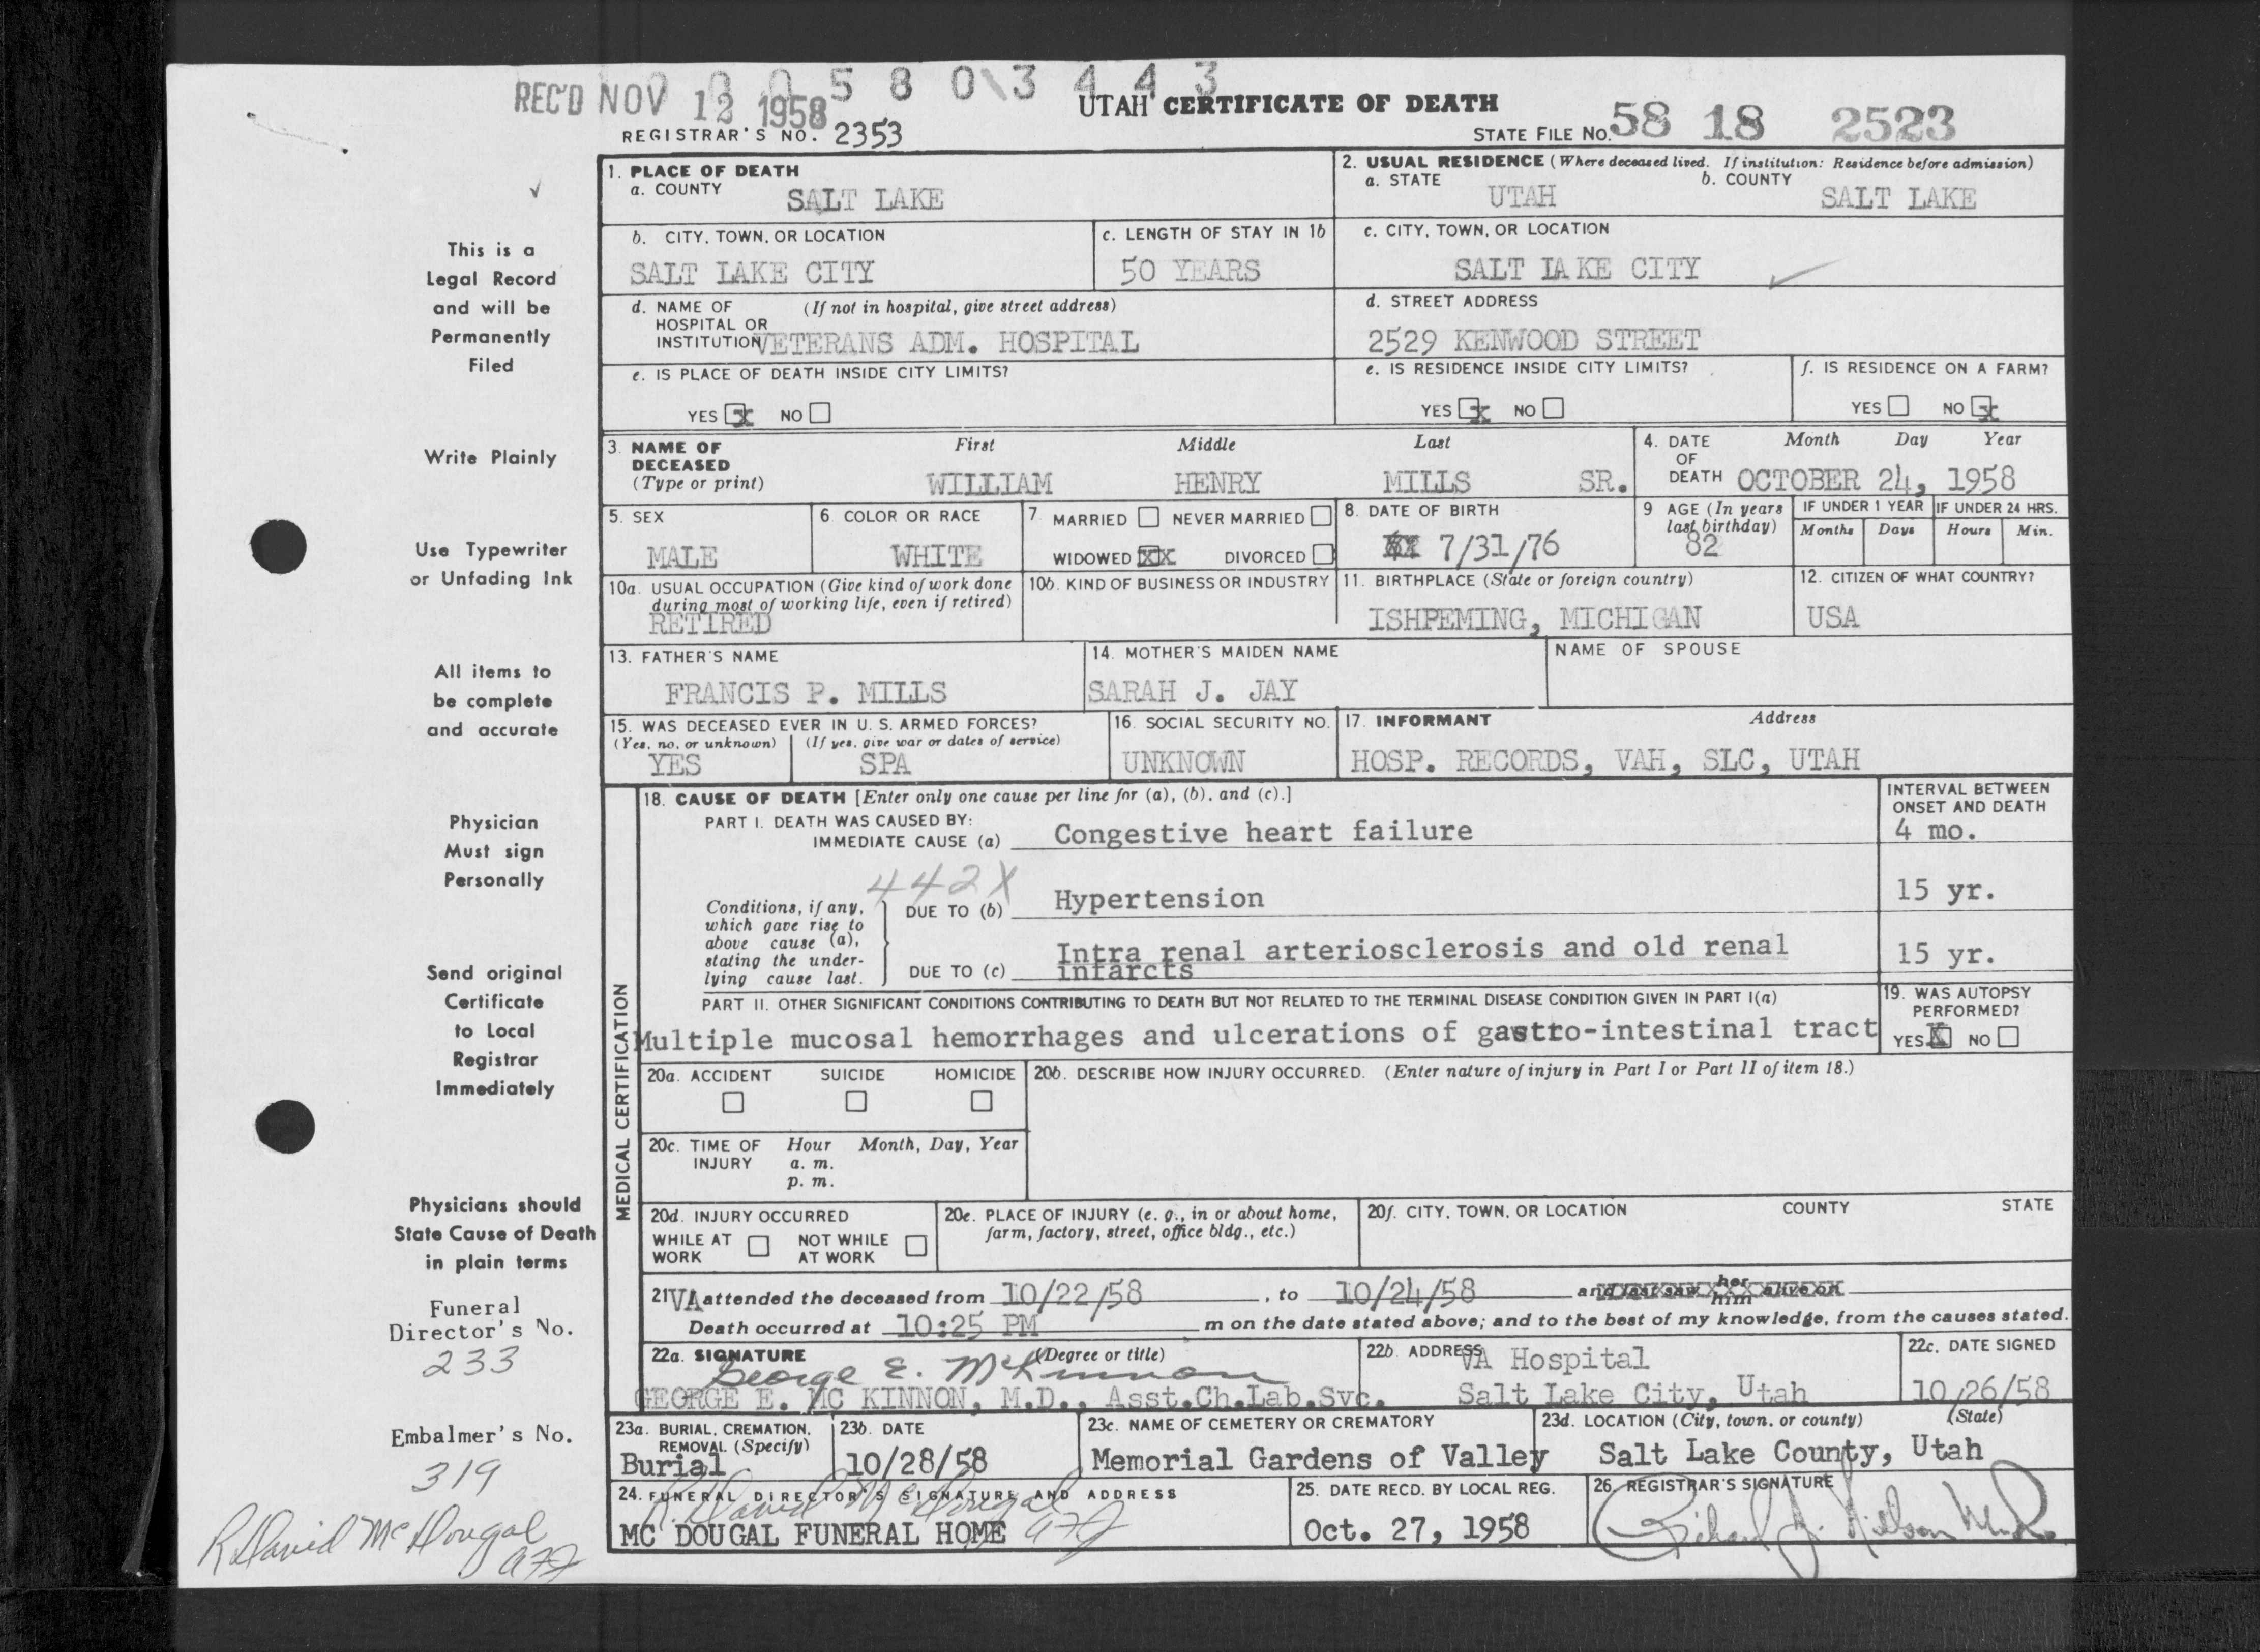 0 0 0 5 8 0 \ 3 4 4 3
REC'D NOV 12 1958
UTAH CERTIFICATE OF DEATH
REGISTRAR'S NO. 2353
STATE FILE NO. 58 18 2523
This is a
Legal Record
and will be
Permanently
Filed
Write Plainly
Use Typewriter
or Unfading Ink
All items to
be complete
and accurate
Physician
Must sign
Personally
Send original
Certificate
to Local
Registrar
Immediately
Physicians should
State Cause of Death
in plain terms
Funeral
Director's No.
233
Embalmer's No.
319
R David McDougal
1. PLACE OF DEATH
a. COUNTY
SALT LAKE
2. USUAL RESIDENCE (Where deceased lived. If institution: Residence before admission)
a. STATE
UTAH
b. COUNTY
SALT LAKE
b. CITY, TOWN, OR LOCATION
SALT LAKE CITY
c. LENGTH OF STAY IN 1b
50 YEARS
c. CITY, TOWN, OR LOCATION
SALT LAKE CITY
d. NAME OF (If not in hospital, give street address)
HOSPITAL OR
INSTITUTION VETERANS ADM. HOSPITAL
d. STREET ADDRESS
2529 KENWOOD STREET
e. IS PLACE OF DEATH INSIDE CITY LIMITS?
YES X NO
e. IS RESIDENCE INSIDE CITY LIMITS?
YES X NO
f. IS RESIDENCE ON A FARM?
YES NO X
3. NAME OF DECEASED (Type or print)
First Middle Last
WILLIAM HENRY MILLS SR.
4. DATE OF DEATH Month Day Year
OCTOBER 24, 1958
5. SEX
MALE
6. COLOR OR RACE
WHITE
7 MARRIED NEVER MARRIED
WIDOWED XX DIVORCED
8. DATE OF BIRTH
7/31/76
9 AGE (In years last birthday)
82
IF UNDER 1 YEAR
Months Days
IF UNDER 24 HRS.
Hours Min.
10a. USUAL OCCUPATION (Give kind of work done during most of working life, even if retired)
RETIRED
10b. KIND OF BUSINESS OR INDUSTRY
11. BIRTHPLACE (State or foreign country)
ISHPEMING, MICHIGAN
12. CITIZEN OF WHAT COUNTRY?
USA
13. FATHER'S NAME
FRANCIS P. MILLS
14. MOTHER'S MAIDEN NAME
SARAH J. JAY
NAME OF SPOUSE
15. WAS DECEASED EVER IN U. S. ARMED FORCES?
(Yes, no, or unknown) (If yes, give war or dates of service)
YES SPA
16. SOCIAL SECURITY NO.
UNKNOWN
17. INFORMANT Address
HOSP. RECORDS, VAH, SLC, UTAH
MEDICAL CERTIFICATION
18. CAUSE OF DEATH [Enter only one cause per line for (a), (b), and (c).]
INTERVAL BETWEEN ONSET AND DEATH
PART I. DEATH WAS CAUSED BY:
IMMEDIATE CAUSE (a) Congestive heart failure 4 mo.
442X
Conditions, if any,
which gave rise to
above cause (a),
stating the under-
lying cause last.
DUE TO (b) Hypertension 15 yr.
DUE TO (c) Intra renal arteriosclerosis and old renal infarcts 15 yr.
PART II. OTHER SIGNIFICANT CONDITIONS CONTRIBUTING TO DEATH BUT NOT RELATED TO THE TERMINAL DISEASE CONDITION GIVEN IN PART I(a)
Multiple mucosal hemorrhages and ulcerations of gastro-intestinal tract
19. WAS AUTOPSY PERFORMED?
YES X NO
20a. ACCIDENT SUICIDE HOMICIDE
20b. DESCRIBE HOW INJURY OCCURRED. (Enter nature of injury in Part I or Part II of item 18.)
20c. TIME OF INJURY Hour Month, Day, Year
a. m.
p. m.
20d. INJURY OCCURRED
WHILE AT WORK NOT WHILE AT WORK
20e. PLACE OF INJURY (e. g., in or about home, farm, factory, street, office bldg., etc.)
20f. CITY, TOWN, OR LOCATION COUNTY STATE
21 VA attended the deceased from 10/22/58, to 10/24/58 and last saw her him alive on
Death occurred at 10:25 PM m on the date stated above; and to the best of my knowledge, from the causes stated.
22a. SIGNATURE (Degree or title)
George E. McKinnon
GEORGE E. MC KINNON, M.D., Asst.Ch.Lab.Svc.
22b. ADDRESS
VA Hospital
Salt Lake City, Utah
22c. DATE SIGNED
10/26/58
23a. BURIAL, CREMATION, REMOVAL (Specify)
Burial
23b. DATE
10/28/58
23c. NAME OF CEMETERY OR CREMATORY
Memorial Gardens of Valley
23d. LOCATION (City, town, or county) (State)
Salt Lake County, Utah
24. FUNERAL DIRECTOR'S SIGNATURE AND ADDRESS
R. David McDougal
MC DOUGAL FUNERAL HOME
25. DATE RECD. BY LOCAL REG.
Oct. 27, 1958
26. REGISTRAR'S SIGNATURE